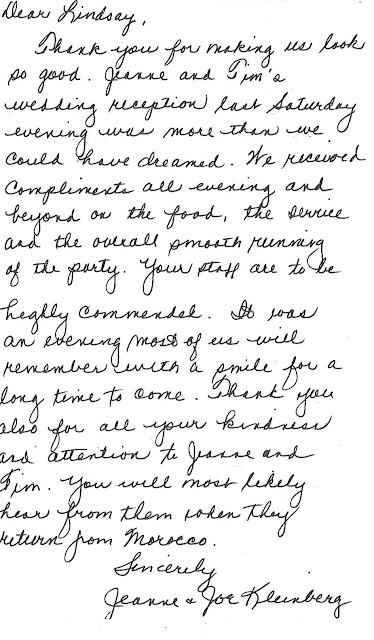 Dear Lindsay,
Thank you for making us look
so good. Jeanne and Tim's
wedding reception last Saturday
evening was more than we
could have dreamed. We received
compliments all evening and
beyond on the food, the service
and the overall smooth running
of the party. Your staff are to be
heghly commended. It was
an evening most of us will
remember with a smile for a
long time to come. Thank you
also for all your kindness
and attention to Jeanne and
Tim. You will most likely
hear from them when they
return from Morocco.
Sincerely
Jeanne & Joe Kleinberg